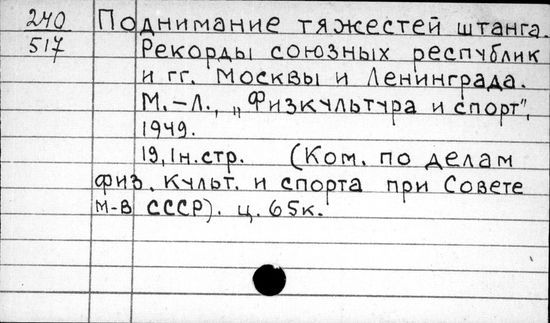 240 Поднимание тяжестей штанга.
517 Рекорды союзных республик
и гг. Москвы и Ленинграда.
М.-Л., „Физкультура и спорт",
1949.
19, 1н.стр. (Ком. по делам
физ. культ. и спорта при Совете
м-в СССР). ц. 65к.